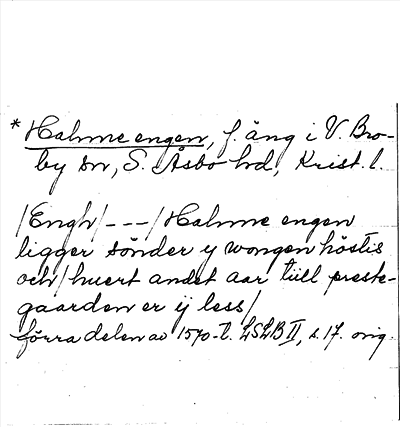 * Halmeengen, f. äng i V. Bro-
by sn, S. Åsbo hd, Krist. l.
/Engh/---/Halmeengen
ligger sönder y wongen höstis
och/huert andet aar tiill preste-
gaarden er ij less/
förra delen av 1570-t. LSLB II, s. 17. orig.